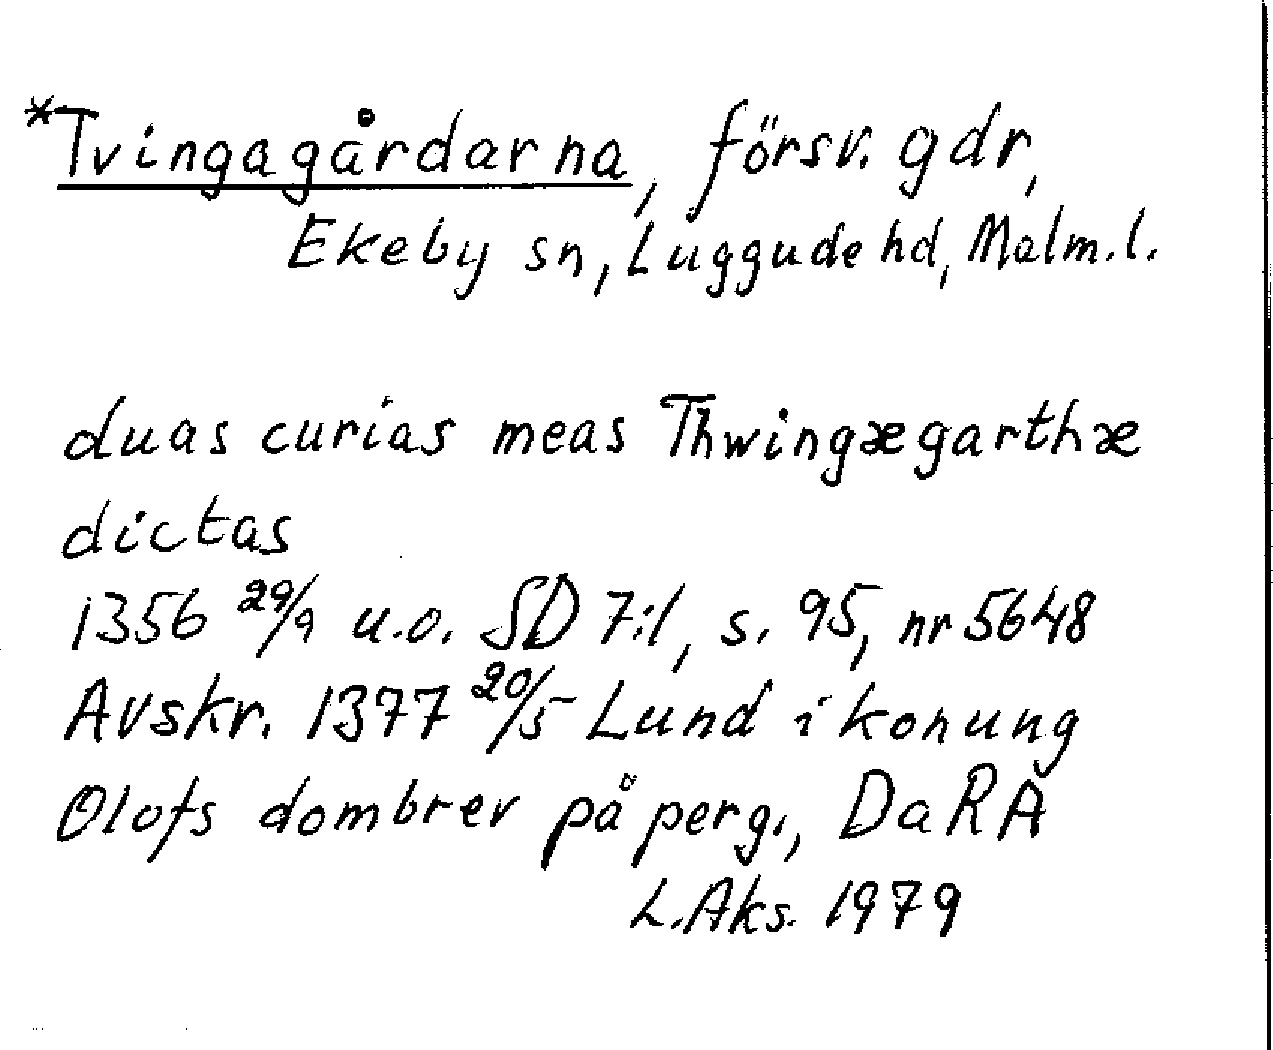 *Tvingagårdarna, försv. gdr,
Ekeby sn, Luggude hd, Malm. l.
duas curias meas Thwingægarthæ
dictas
1356 29/9 u.o. SD 7:1, s. 95, nr 5648
Avskr. 1377 20/5 Lund i konung
Olofs dombrev på perg., DaRA
L.Aks. 1979